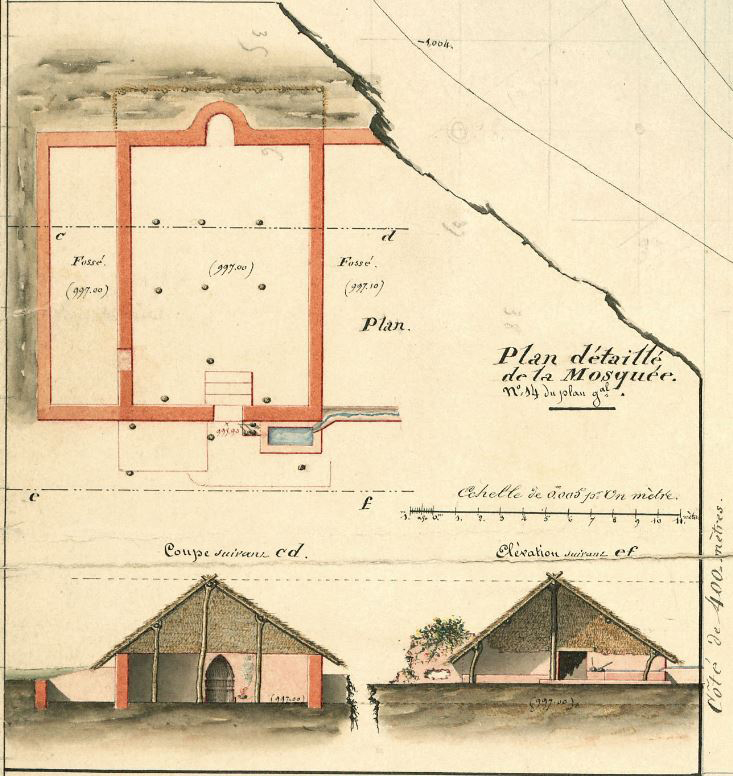 1,004.
c
d
Fossé.
(997.00)
(997.00)
Fossé.
(997.10)
Plan.
Plan détaillé
de la Mosquée.
N.º 14 du plan g.al
e
f
Echelle de 0.005 pr. Un mètre.
1. 2. 3. 4. 5. 6. 7. 8. 9. 10. 11. mètres
Coupe suivant cd.
Elévation suivant ef
(997.00)
(997.00)
Côté de 400 mètres.